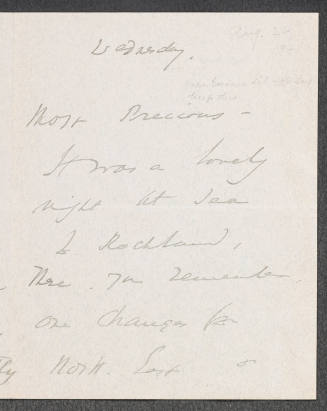 Aug. 24
Wednesday.
Most Precious –
It was a lovely
night at sea
to Rockland,
there, you remember,
one changes for
North East &